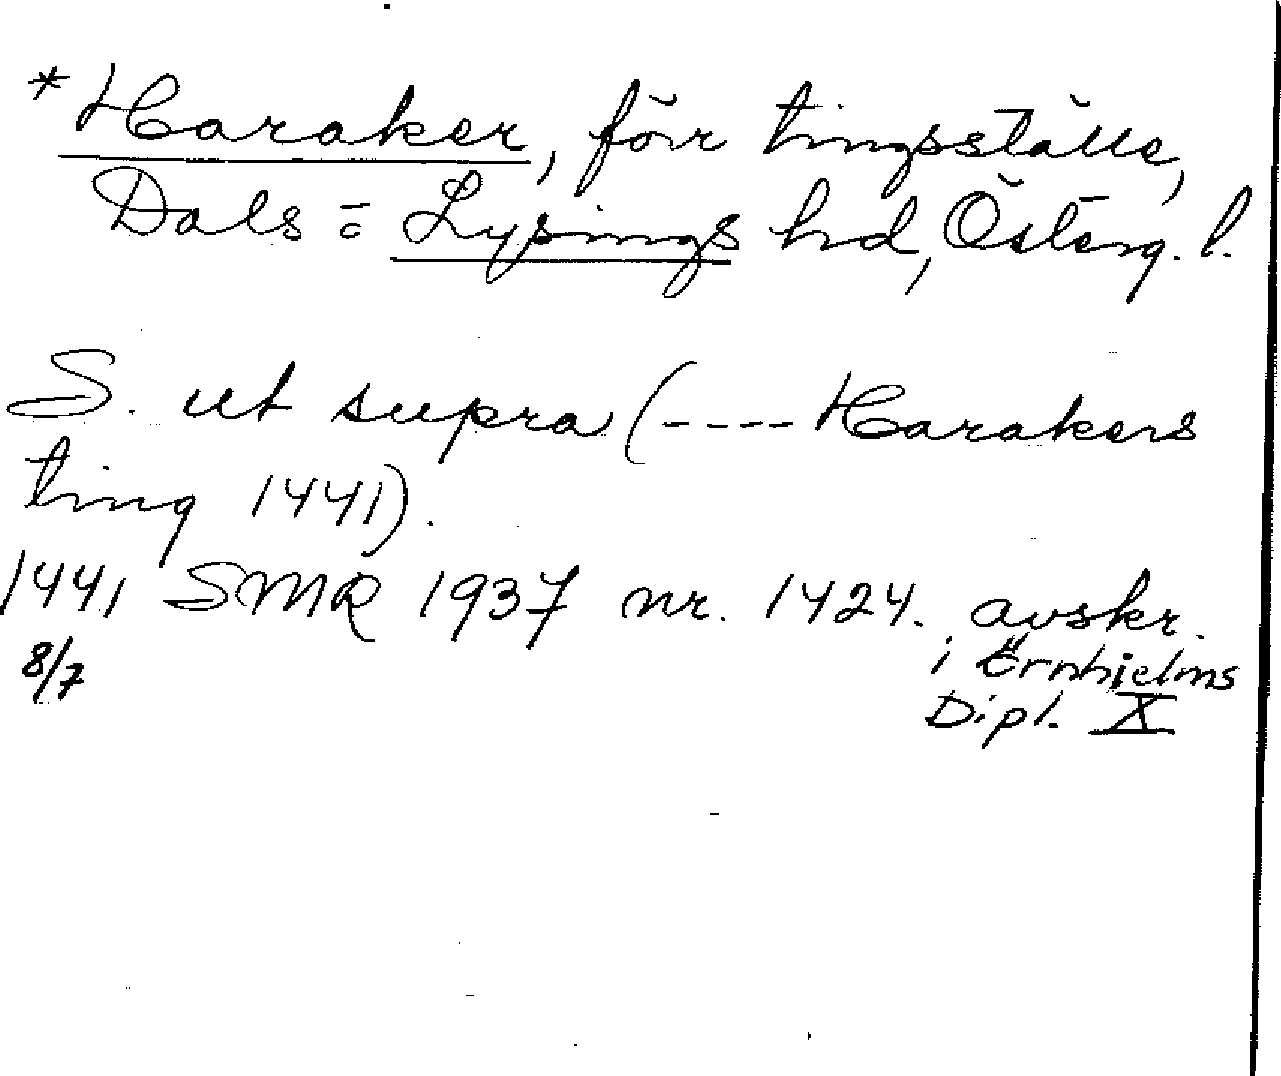 *Haraker, förr tingsställe,
Dals = Lysings hd, Österg. l.
S. ut supra (---- Harakers
ting 1441).
1441 SMR 1937 nr. 1424. avskr.
8/7 i Örnhielms
Dipl. X